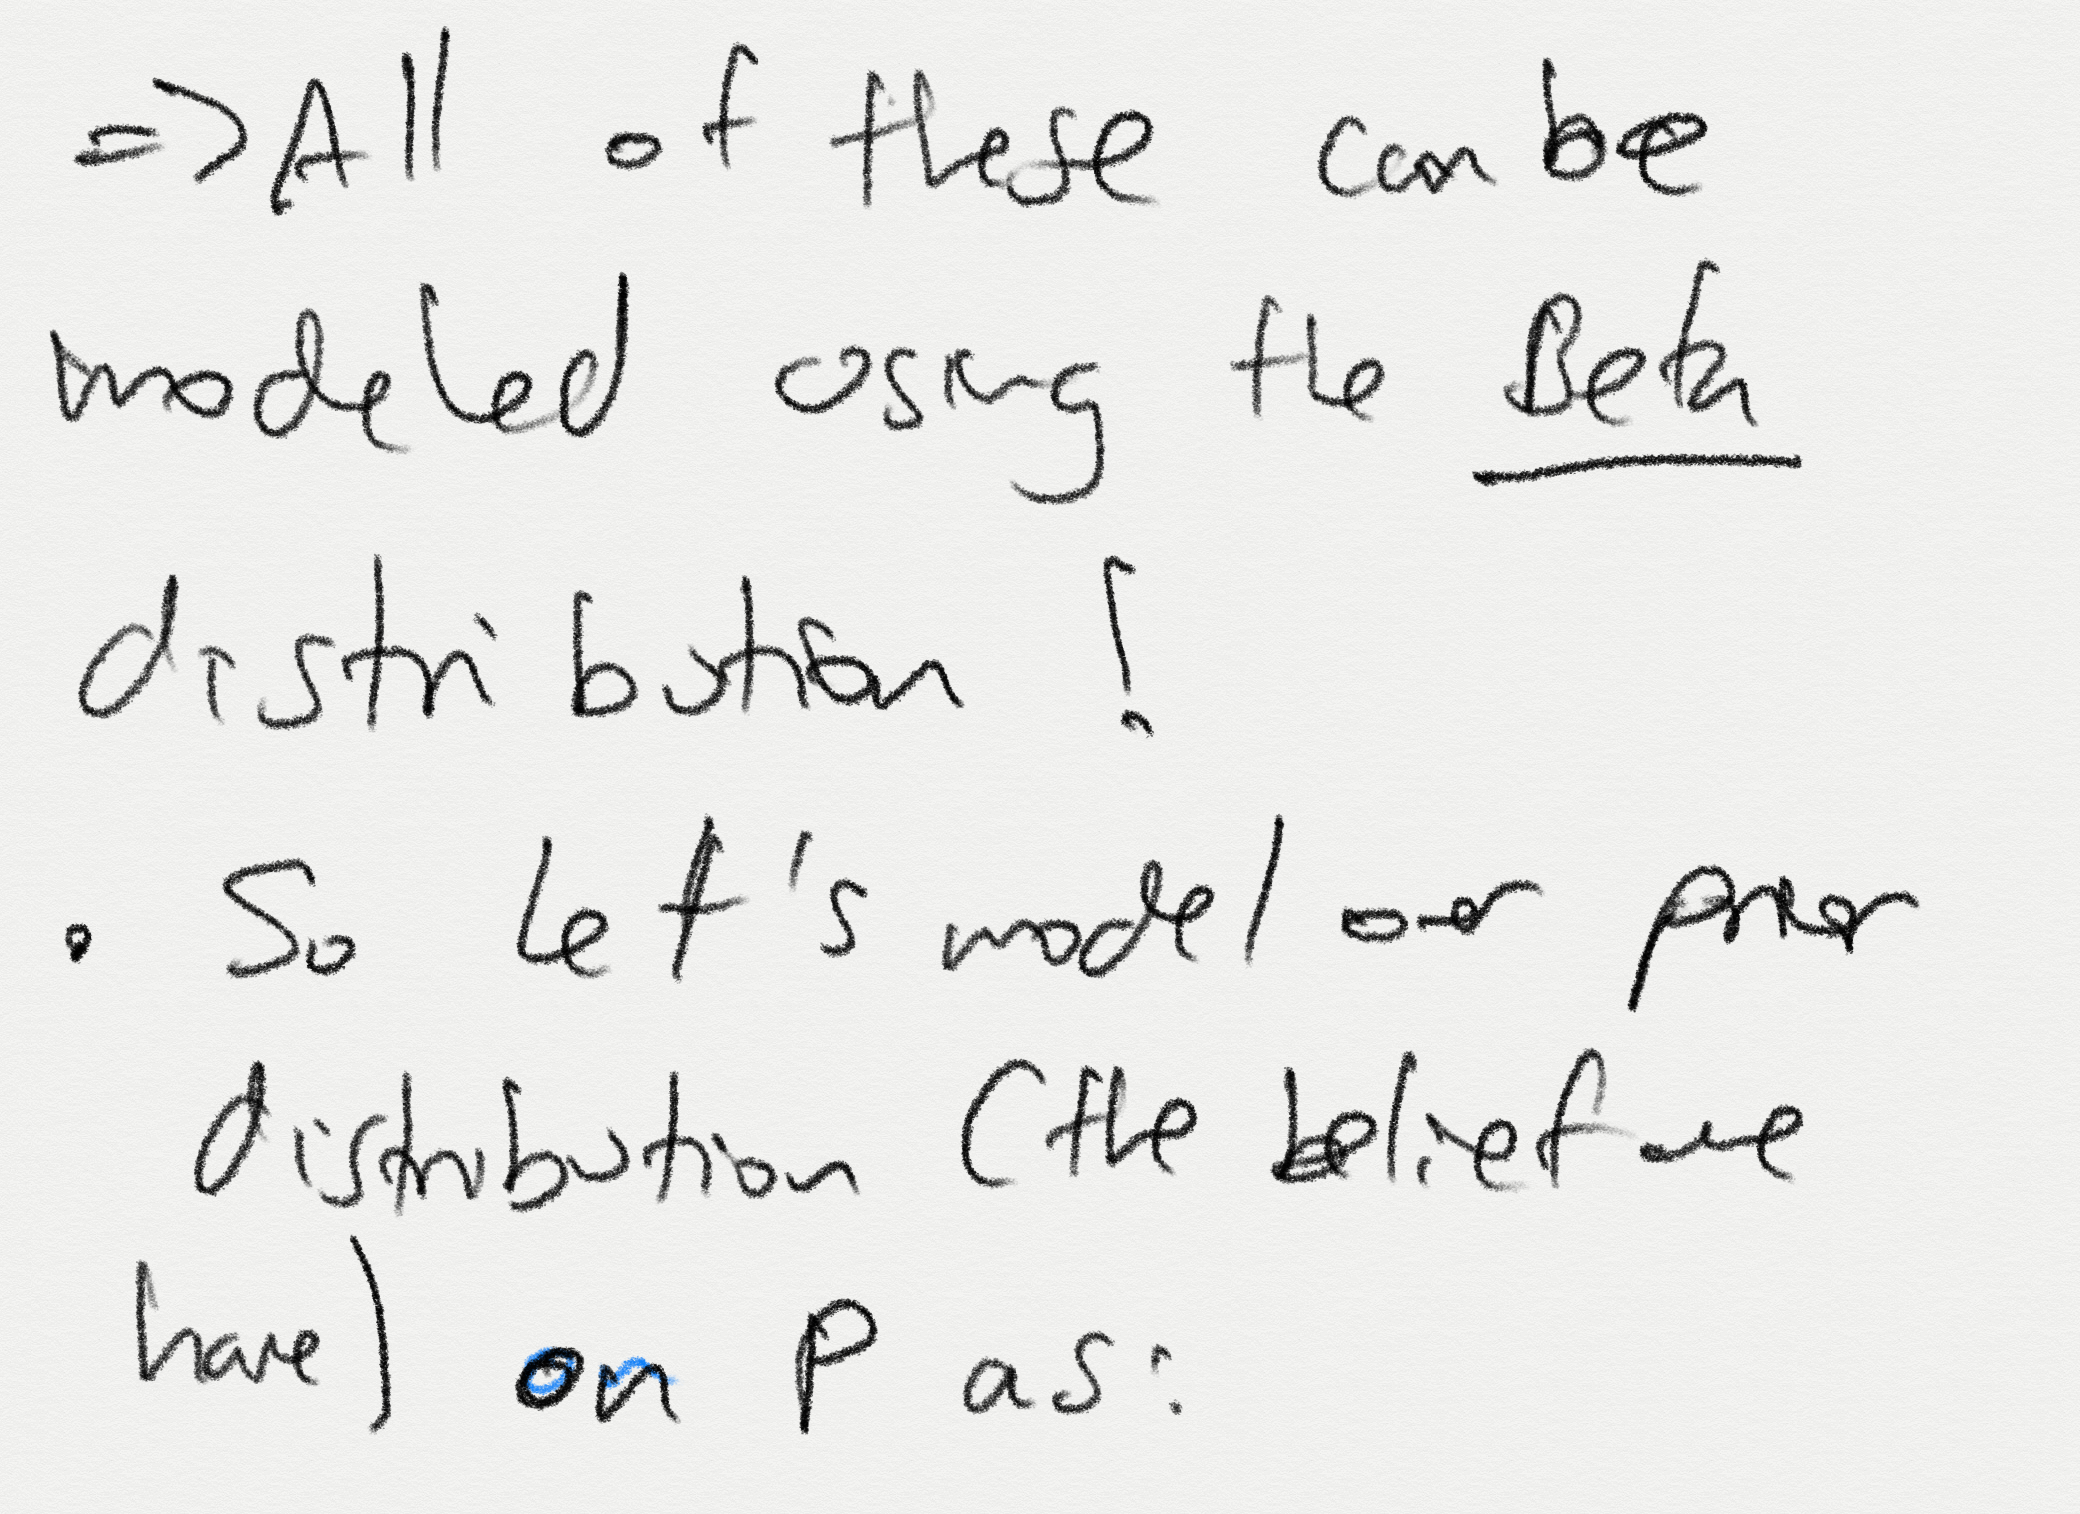 => All of these can be
modeled using the Beta
distribution!
• So let's model our prior
distribution (the belief we
have) on P as: